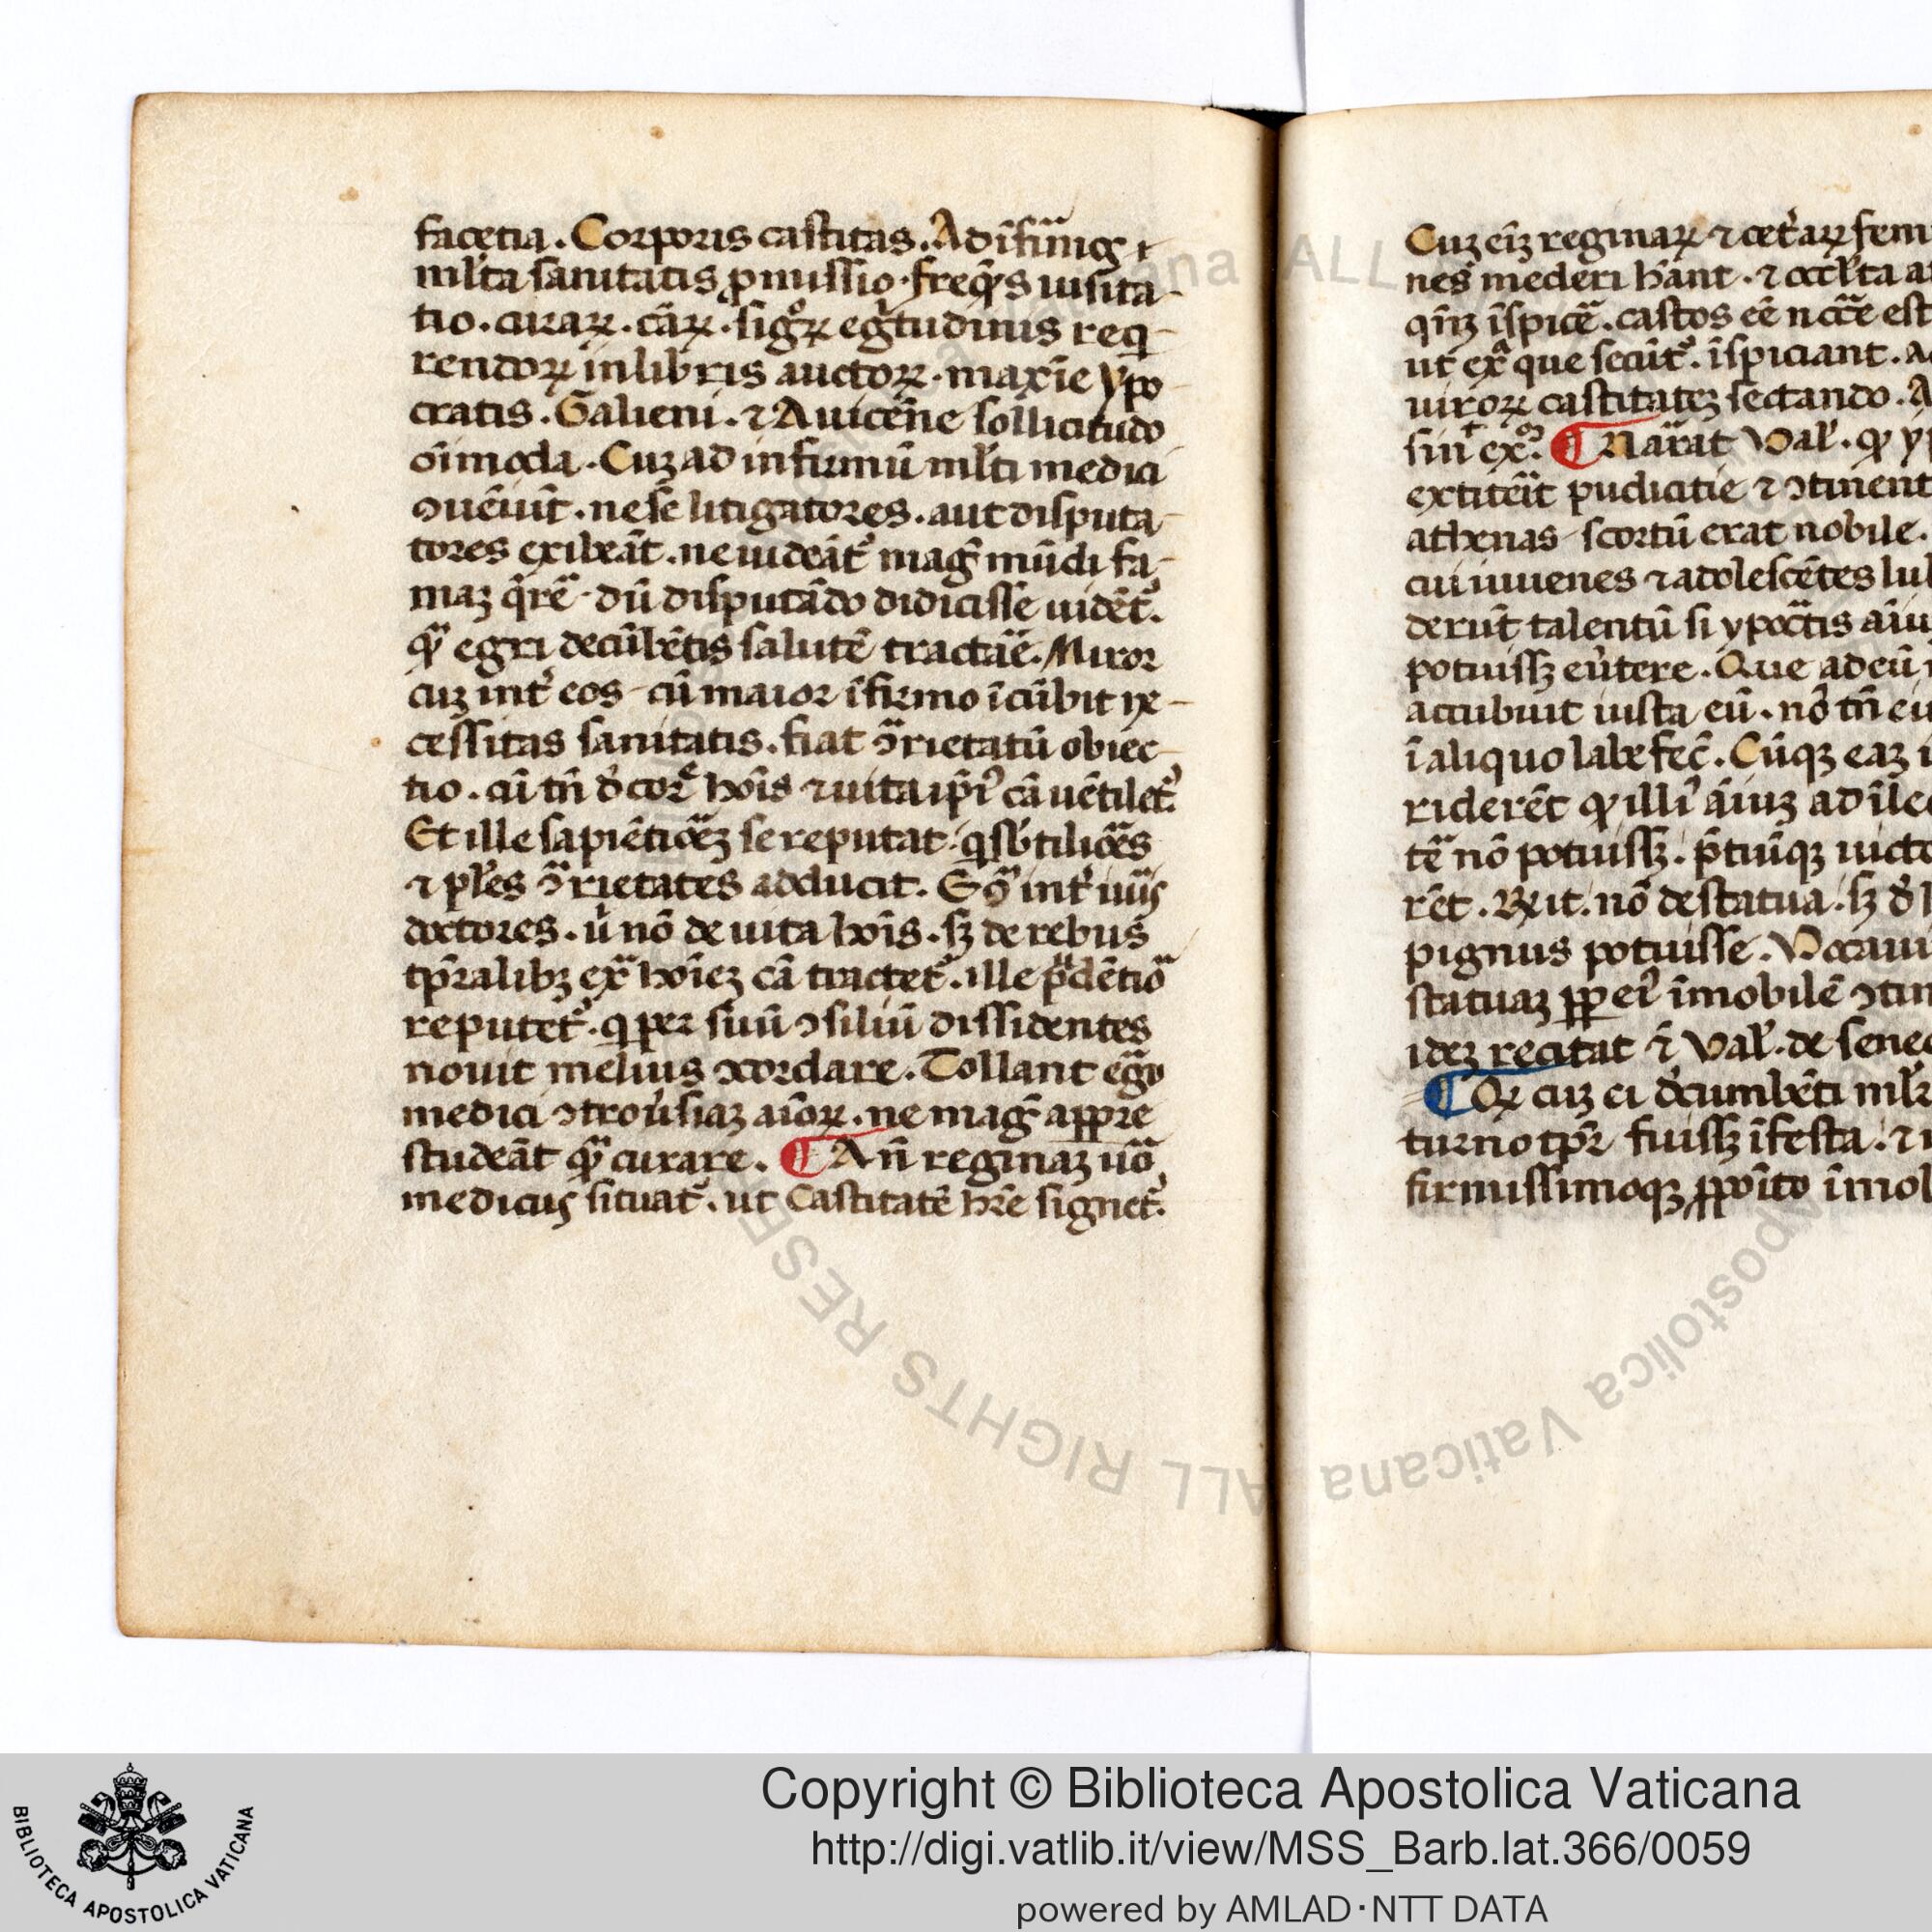 facetia. Corporis castitas. Ad ifīmg ⁊
ml̄ta sanitatis ꝓmissio. freq̄ꝰs uisita-
tio. curaꝝ. cāꝝ. sigoꝝ egͥtudinis req-
rendoꝝ in libris auctoꝝ. maxīe ypo-
cratis. Galieni. ⁊ Auicēne sollicitudo
oīmoda. Cuꝫ ad infirmū ml̄ti medici
ↄuēiūt. ne se litigatores. aut disputa-
tores exibeāt. ne uideāt᷑ maḡ mūdi fa-
maꝫ q̄rē. dū disputādo didicisse uidēt᷑.
qᷓ egri decūbētis salutē tractāe. Miror
cuꝫ int᷑ eos cū maior īfirmo īcūbit ne-
cessitas sanitatis. fiat ↄᷓrietatū obiec-
tio. cū tn̄ d̄ corꝑe hoīs ⁊ uita ip̄iꝰ cā uētilet᷑.
Et ille sapiētioᷓeꝫ se reputat. q sb᷑tilioᷓes
⁊ pl̄es ↄᷓrietates adducit.
doctores. u᷑ nō de uita hoīs. sꝫ de rebus
tp̄ralibꝫ exᷓ hoīeꝫ cā tractet᷑. ille pᷓdētioᷓ
reputet᷑. q per suū ↄsiliū dissidentes
nouit melius ↄcordare. Tollant egͦ
medici ↄtrou᷑siaꝫ aīoꝝ. ne maḡ appre
studeāt qᷓ curare. ¶ An̄ reginaꝫ uō
medicus situat᷑. ut castitatē hr̄e signet᷑.
Cuꝫ eīꝫ reginaꝝ ⁊ cet᷑aꝝ fem
nes mederi hānt. ⁊ occl̄ta
qīꝫ īspicē. castos eē nccē est
ut exᷓ que secūt᷑. īspiciant.
uiroꝝ castitateꝫ sectando.
¶ Narat Val᷑. ꝙ
extitēit pudicitie ⁊ ↄtinent
athenas scortū erat nobile.
cui iuuenes ⁊ adolescētes
derūt talentū si ypocͣtis
potuissꝫ eu᷑tere. Que ad eū
accubuit iusta eū. nō tn̄
ī aliquo labefec̄. Cūqꝫ eaꝫ
riderēt ꝙ illiꝰ aīuꝫ ad
tē nō potuissꝫ. p̄tiūqꝫ uicto
rēt. nō de statua. sꝫ d̄
pignus potuisse. Vocaui
statuaꝫ ꝓp eiꝰ īmobilē ↄtin
ideꝫ recitat ī Val᷑. de senec
¶ Qꝝ cuꝫ ei d̄cumbēti
turno tp̄r fuissꝫ īfesta. ⁊
firmissimoqꝫ ꝓpoīto īmo
Copyright © Biblioteca Apostolica Vaticana
http://digi.vatlib.it/view/MSS_Barb.lat.366/0059
powered by AMLAD·NTT DATA
BIBLIOTECA APOSTOLICA VATICANA